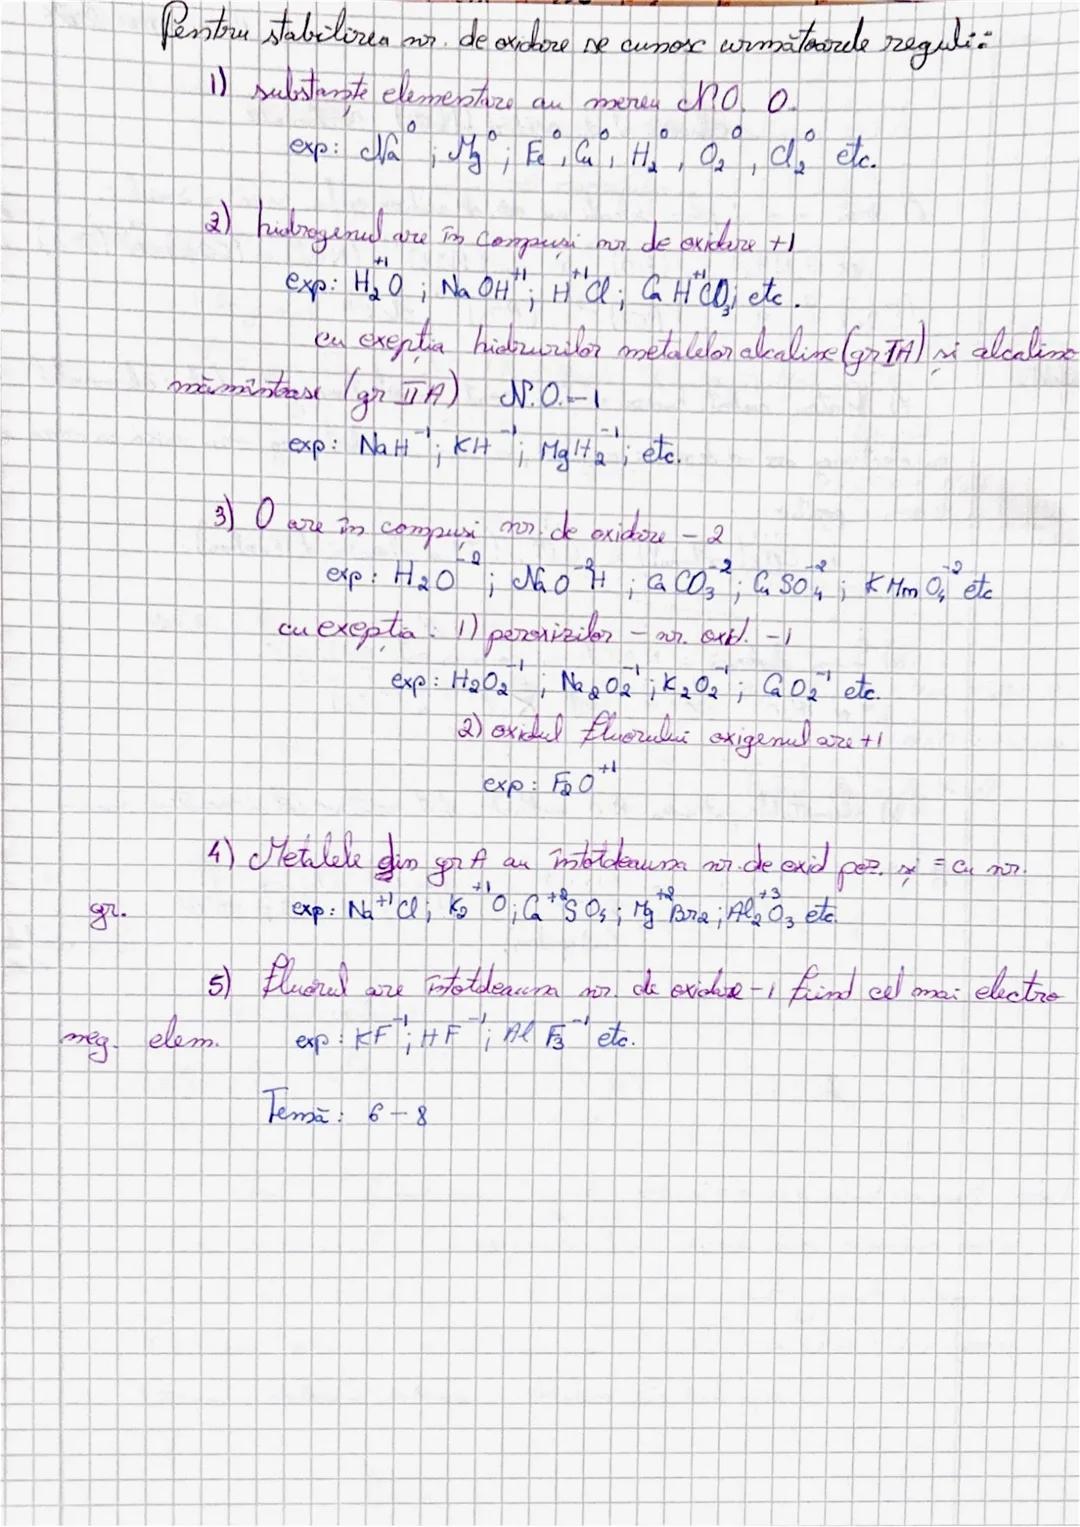 Pentru stabilirea nr. de oxidare se cunosc următoarele reguli:
1) substanțe elementare au mereu N.O. 0.
exp: Na⁰; Mg⁰; Fe⁰, Cu⁰, H₂⁰, O₂⁰, Cl₂⁰ etc.
2) hidrogenul are în compuși nr. de oxidare +1
exp: H₂⁺¹O; NaOH⁺¹; H⁺¹Cl; CaH⁺¹CO₃; etc.
cu exepția hidrurilor metalelor alcaline (gr IA) și alcalino
mămîntase (gr II A) N.O. -1
exp: NaH⁻¹; KH⁻¹; MgH₂⁻¹; etc.
3) O are în compuși nr. de oxidare -2
exp: H₂O⁻²; NaO⁻²H; CaCO₃⁻²; CuSO₄⁻²; KMnO₄⁻² etc
cu exepția: 1) peroxizilor - nr. oxid. -1
exp: H₂O₂⁻¹; Na₂O₂⁻¹; K₂O₂⁻¹; CaO₂⁻¹ etc.
2) oxidul fluorului oxigenul are +1
exp: F₂O⁺¹
4) Metalele din gr A au întotdeauna nr. de oxid poz. și = cu nr.
gr. exp: Na⁺¹Cl; K₂⁺¹O; Ca⁺²SO₄; Mg⁺²Br₂; Al₂⁺³O₃ etc.
5) fluorul are întotdeauna nr. de oxidare -1 fiind cel mai electro
neg. elem. exp: KF⁻¹; HF⁻¹; AlF₃⁻¹ etc.
Temă: 6-8